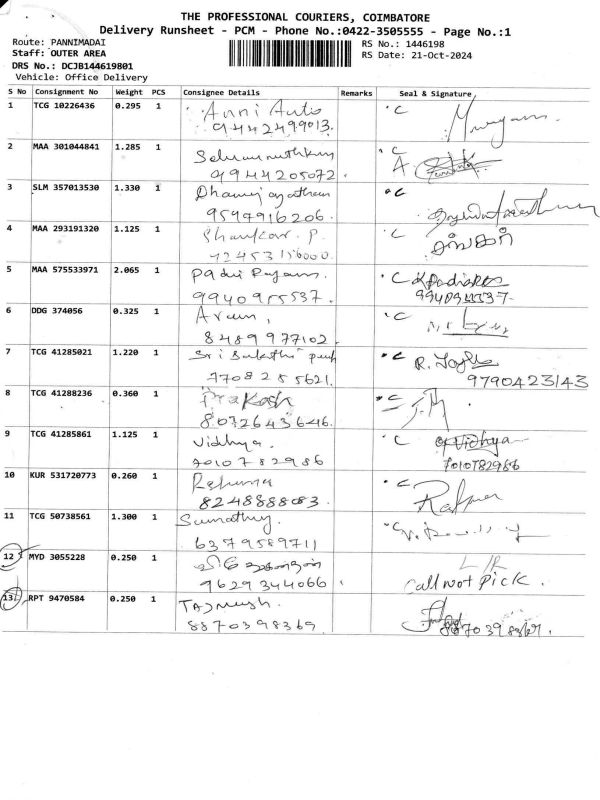 THE PROFESSIONAL COURIERS, COIMBATORE
Delivery Runsheet - PCM - Phone No.:0422-3505555 - Page No.:1
Route: PANNIMADAI
RS No.: 1446198
Staff: OUTER AREA
RS Date: 21-Oct-2024
DRS No.: DCJB144619801
Vehicle: Office Delivery
S No Consignment No Weight PCS Consignee Details Remarks Seal & Signature
1 TCG 10226436 0.295 1 Anni Auto C
9442499013.
2 MAA 301044841 1.285 1 C
9944205072.
3 SLM 357013530 1.330 1 C
9597916206.
4 MAA 293191320 1.125 1 Shankar. P. C
5 MAA 575533971 2.065 1 C
9940955537.
6 DDG 374056 0.325 1 C
8489977102.
7 TCG 41285021 1.220 1 Sri C R.
7708255621. 9790423143
8 TCG 41288236 0.360 1 Prakash C
8072643646.
9 TCG 41285861 1.125 1 Vidhya. C Vidhya
7010782986 7010782986
10 KUR 531720773 0.260 1 C
8248888083.
11 TCG 50738561 1.300 1 C
6379589711
12 MYD 3055228 0.250 1 L/R
9629344066 Call Not Pick.
13 RPT 9470584 0.250 1
8870398369.